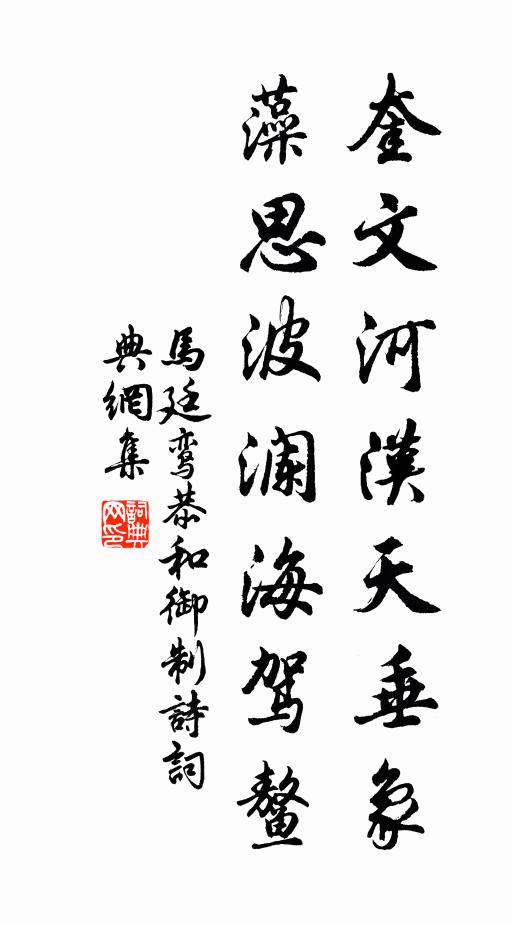 奎文河漢天垂象
藻思波澜海驾鳌
馬廷鸾恭和御制詩詞
典網集
詞典网印